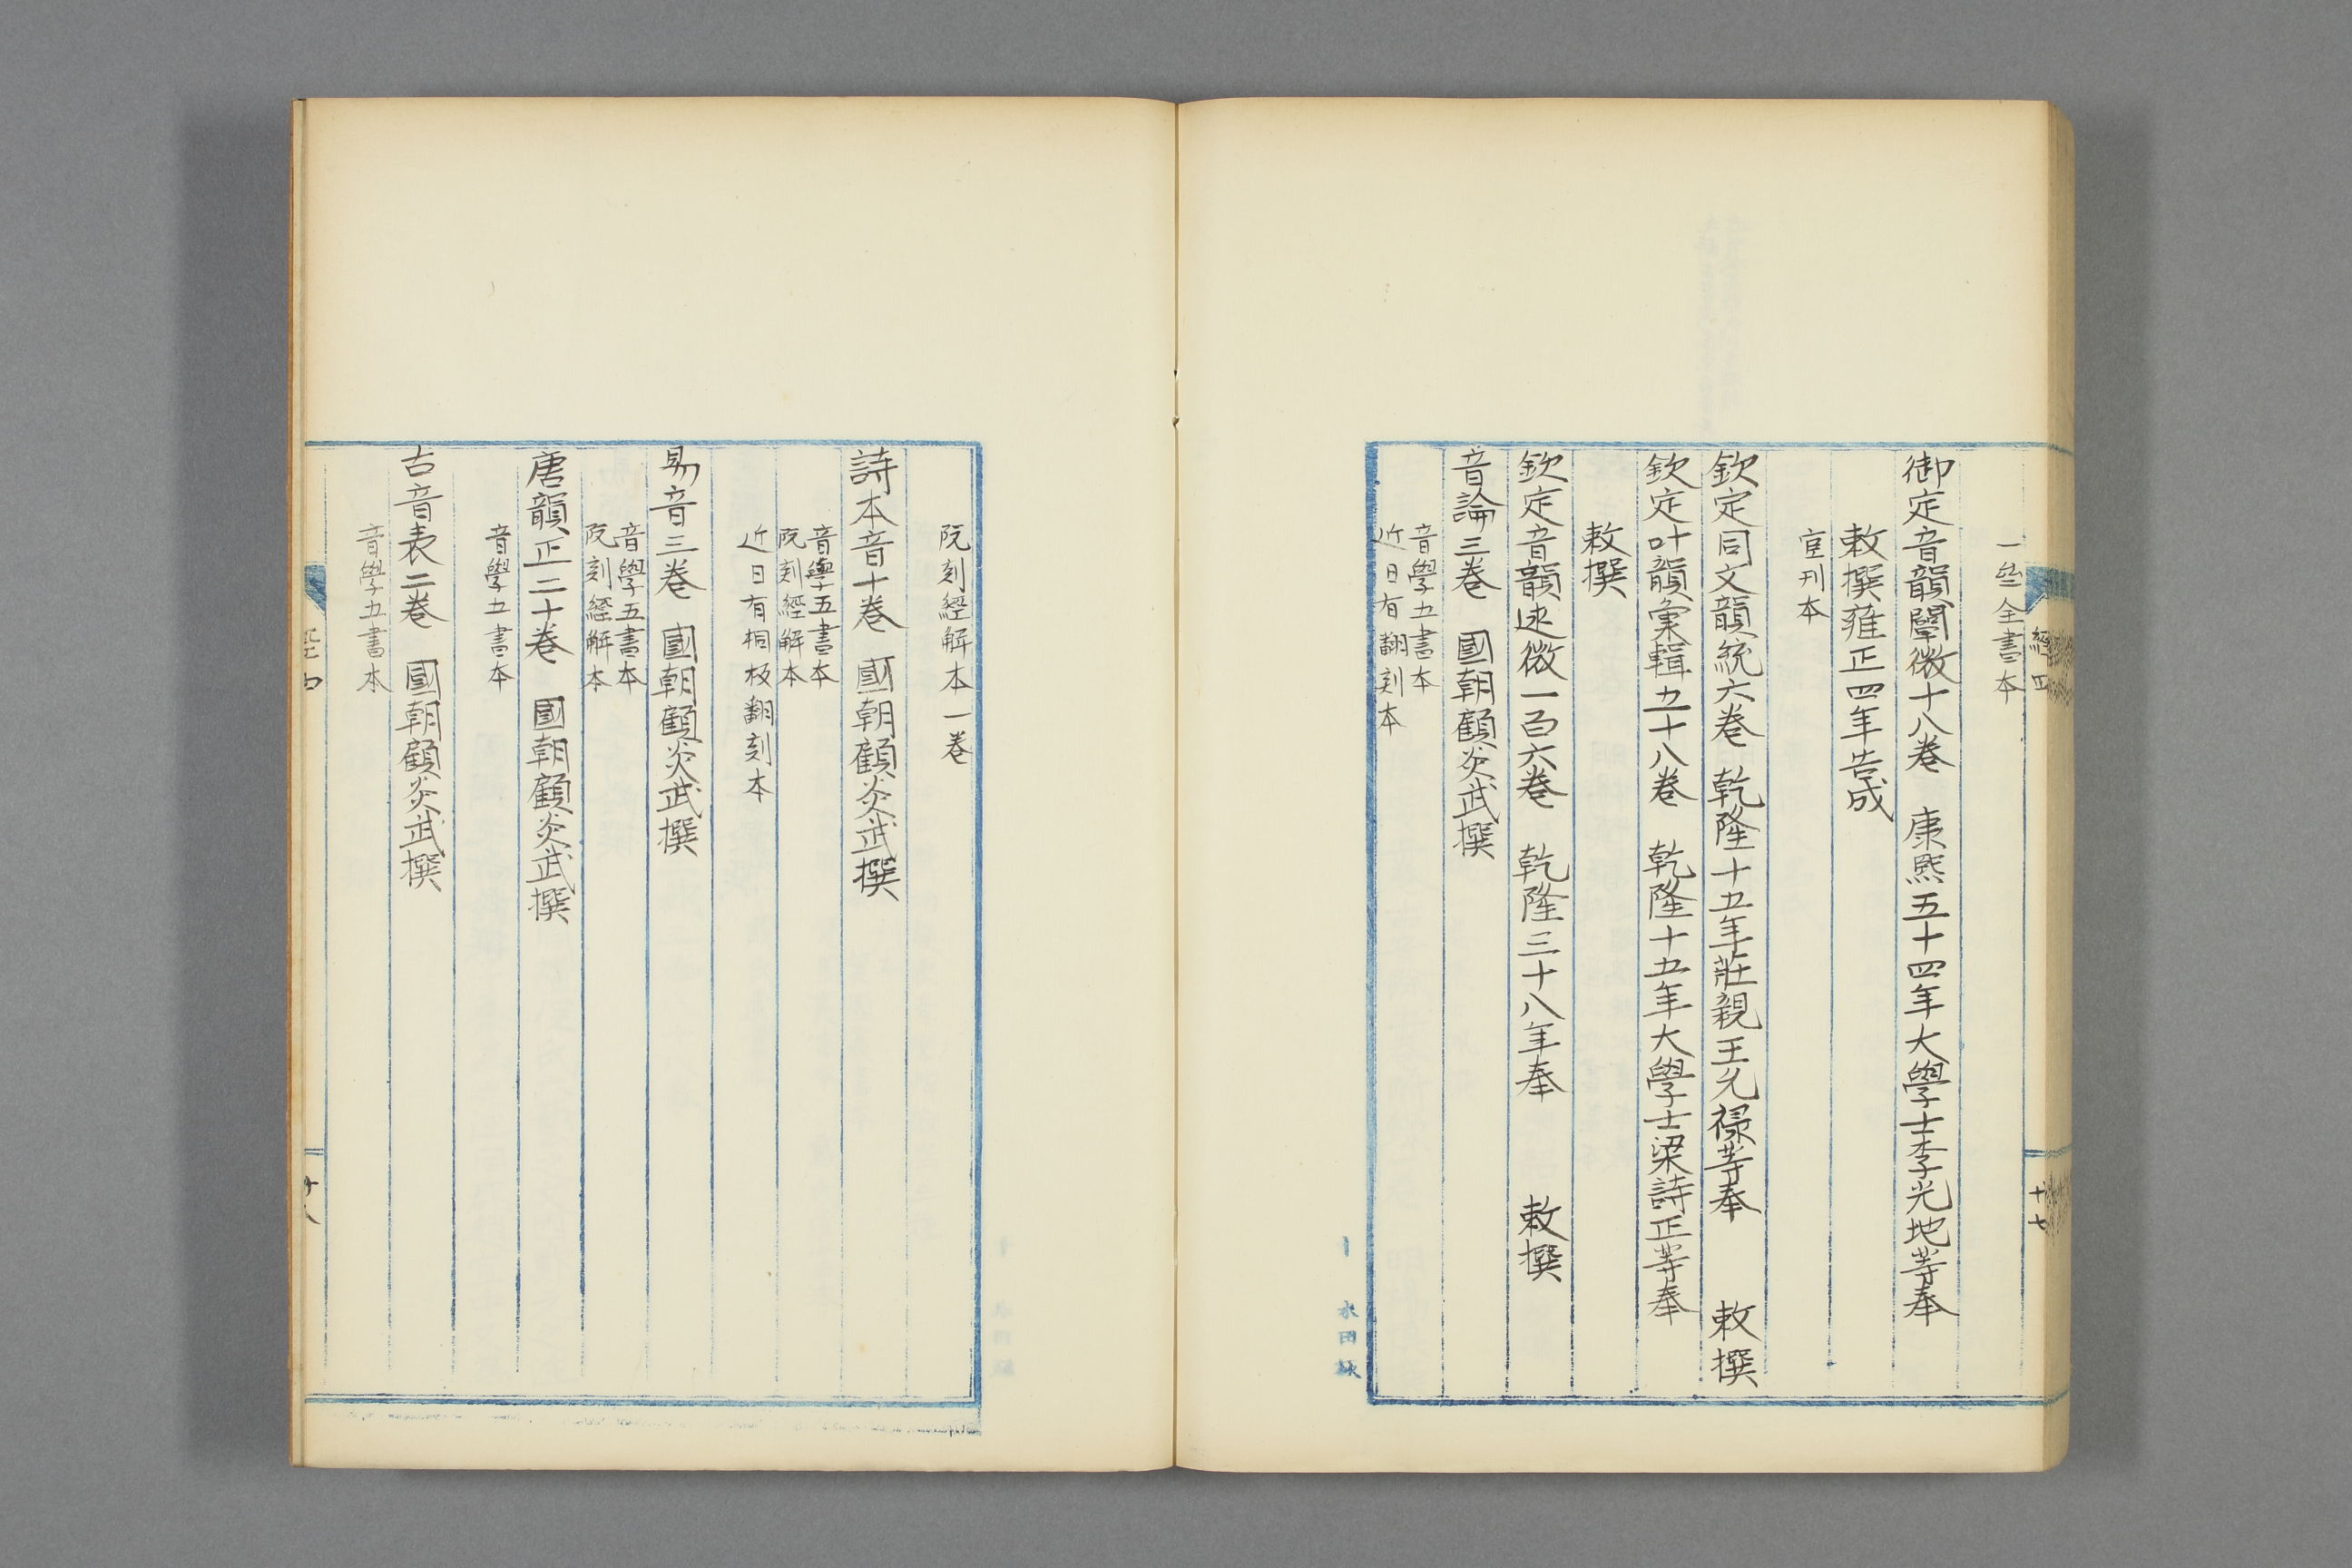 一些全書本
御定音韻闡微十八卷　康熙五十四年大學士李光地等奉
敕撰雍正四年告成
官刊本
欽定同文韻統六卷　乾隆十五年莊親王允祿等奉　敕撰
欽定叶韻彙輯五十八卷　乾隆十五年大學士梁詩正等奉
敕撰
欽定音韻述微一百六卷　乾隆三十八年奉　敕撰
音論三卷　國朝顧炎武撰
音學五書本
近日有翻刻本
阮刻經解本一卷
詩本音十卷　國朝顧炎武撰
音學五書本
阮刻經解本
近日有桐板翻刻本
易音三卷　國朝顧炎武撰
音學五書本
阮刻經解本
唐韻正二十卷　國朝顧炎武撰
音學五書本
古音表二卷　國朝顧炎武撰
音學五書本